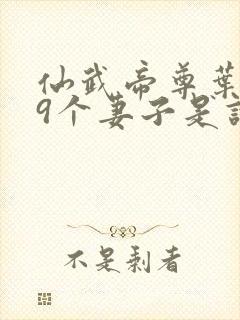 仙武帝尊葉
9个妻子是
不是剩者